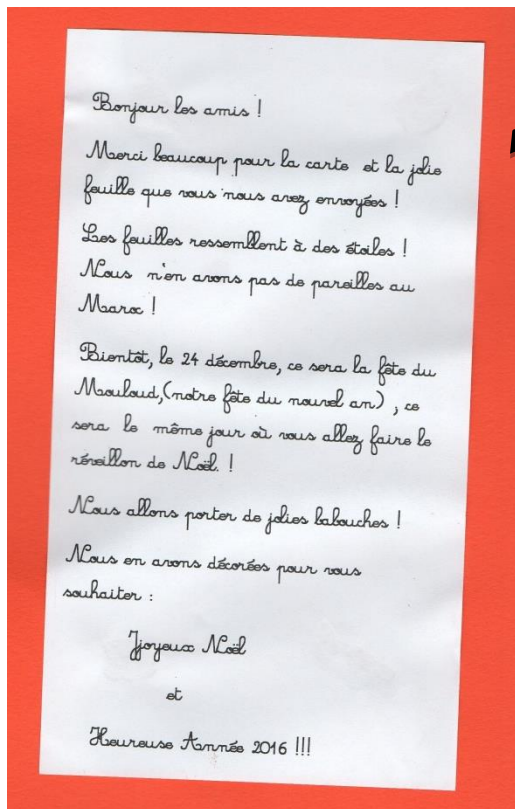 Bonjour les amis !
Merci beaucoup pour la carte et la jolie
feuille que vous nous avez envoyées !
Les feuilles ressemblent à des étoiles !
Nous n'en avons pas de pareilles au
Maroc !
Bientôt, le 24 décembre, ce sera la fête du
Mouloud,(notre fête du nouvel an) , ce
sera le même jour où vous allez faire le
réveillon de Noël. !
Nous allons porter de jolies babouches !
Nous en avons décorées pour vous
souhaiter :
Jjoyeux Noël
et
Heureuse Année 2016 !!!